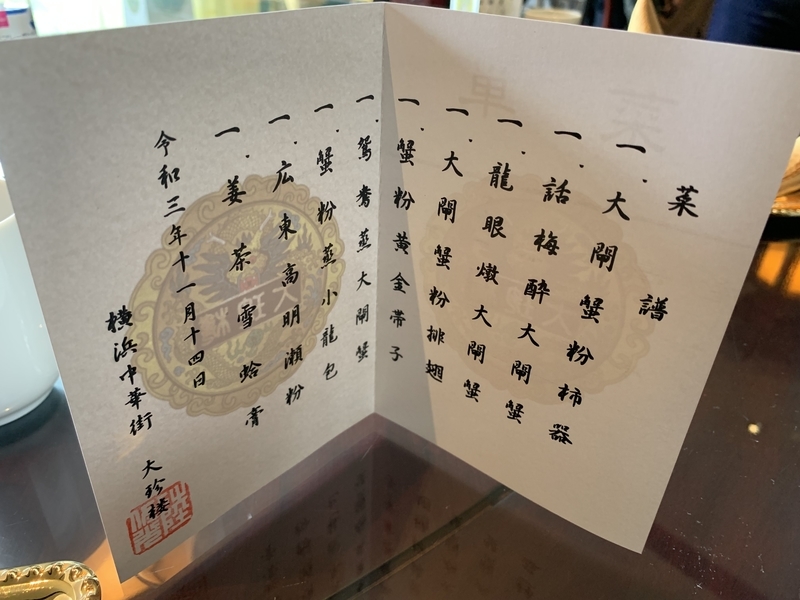 菜譜
一.大閘蟹粉柿器
一.話梅酔大閘蟹
一.龍眼燉大閘蟹
一.大閘蟹粉排翅
一.蟹粉黄金帯子
一.鴛鴦蒸大閘蟹
一.蟹粉蒸小龍包
一.広東高明瀬粉
一.姜茶雪蛤膏
令和三年十一月十四日
横浜中華街 大珍楼